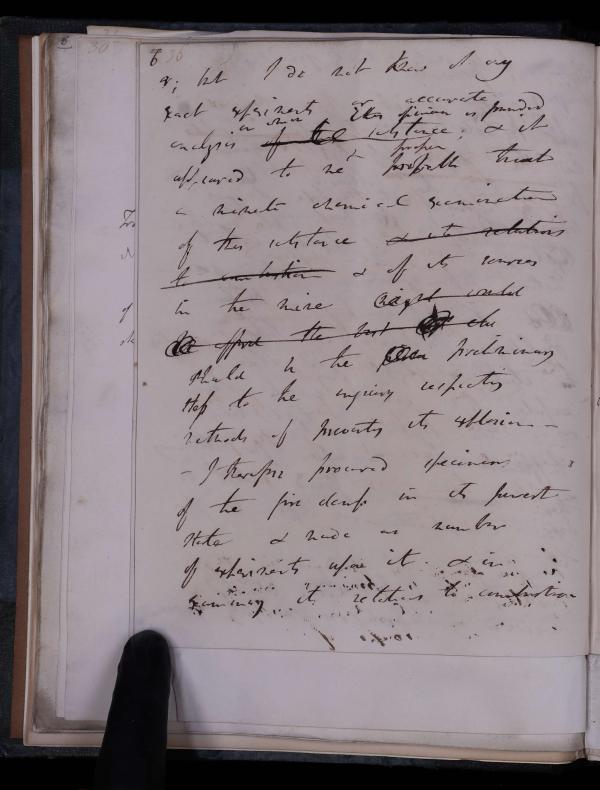 6 36
30
8
&; but I do not know of any
exact experiments or accurate
analysis of the substance; & it
in which this specimen is founded
appeared to me that proper
a minute chemical examination
of this substance & its relations
to combustion & of its sources
in the mine might would
afford the best
should be the preliminary
step to the enquiry respecting
methods of preventing its explosion —
— I therefore procured specimens
of the fire damp in its purest
state & made a number
of experiments upon it & in
examining its relations to combustion